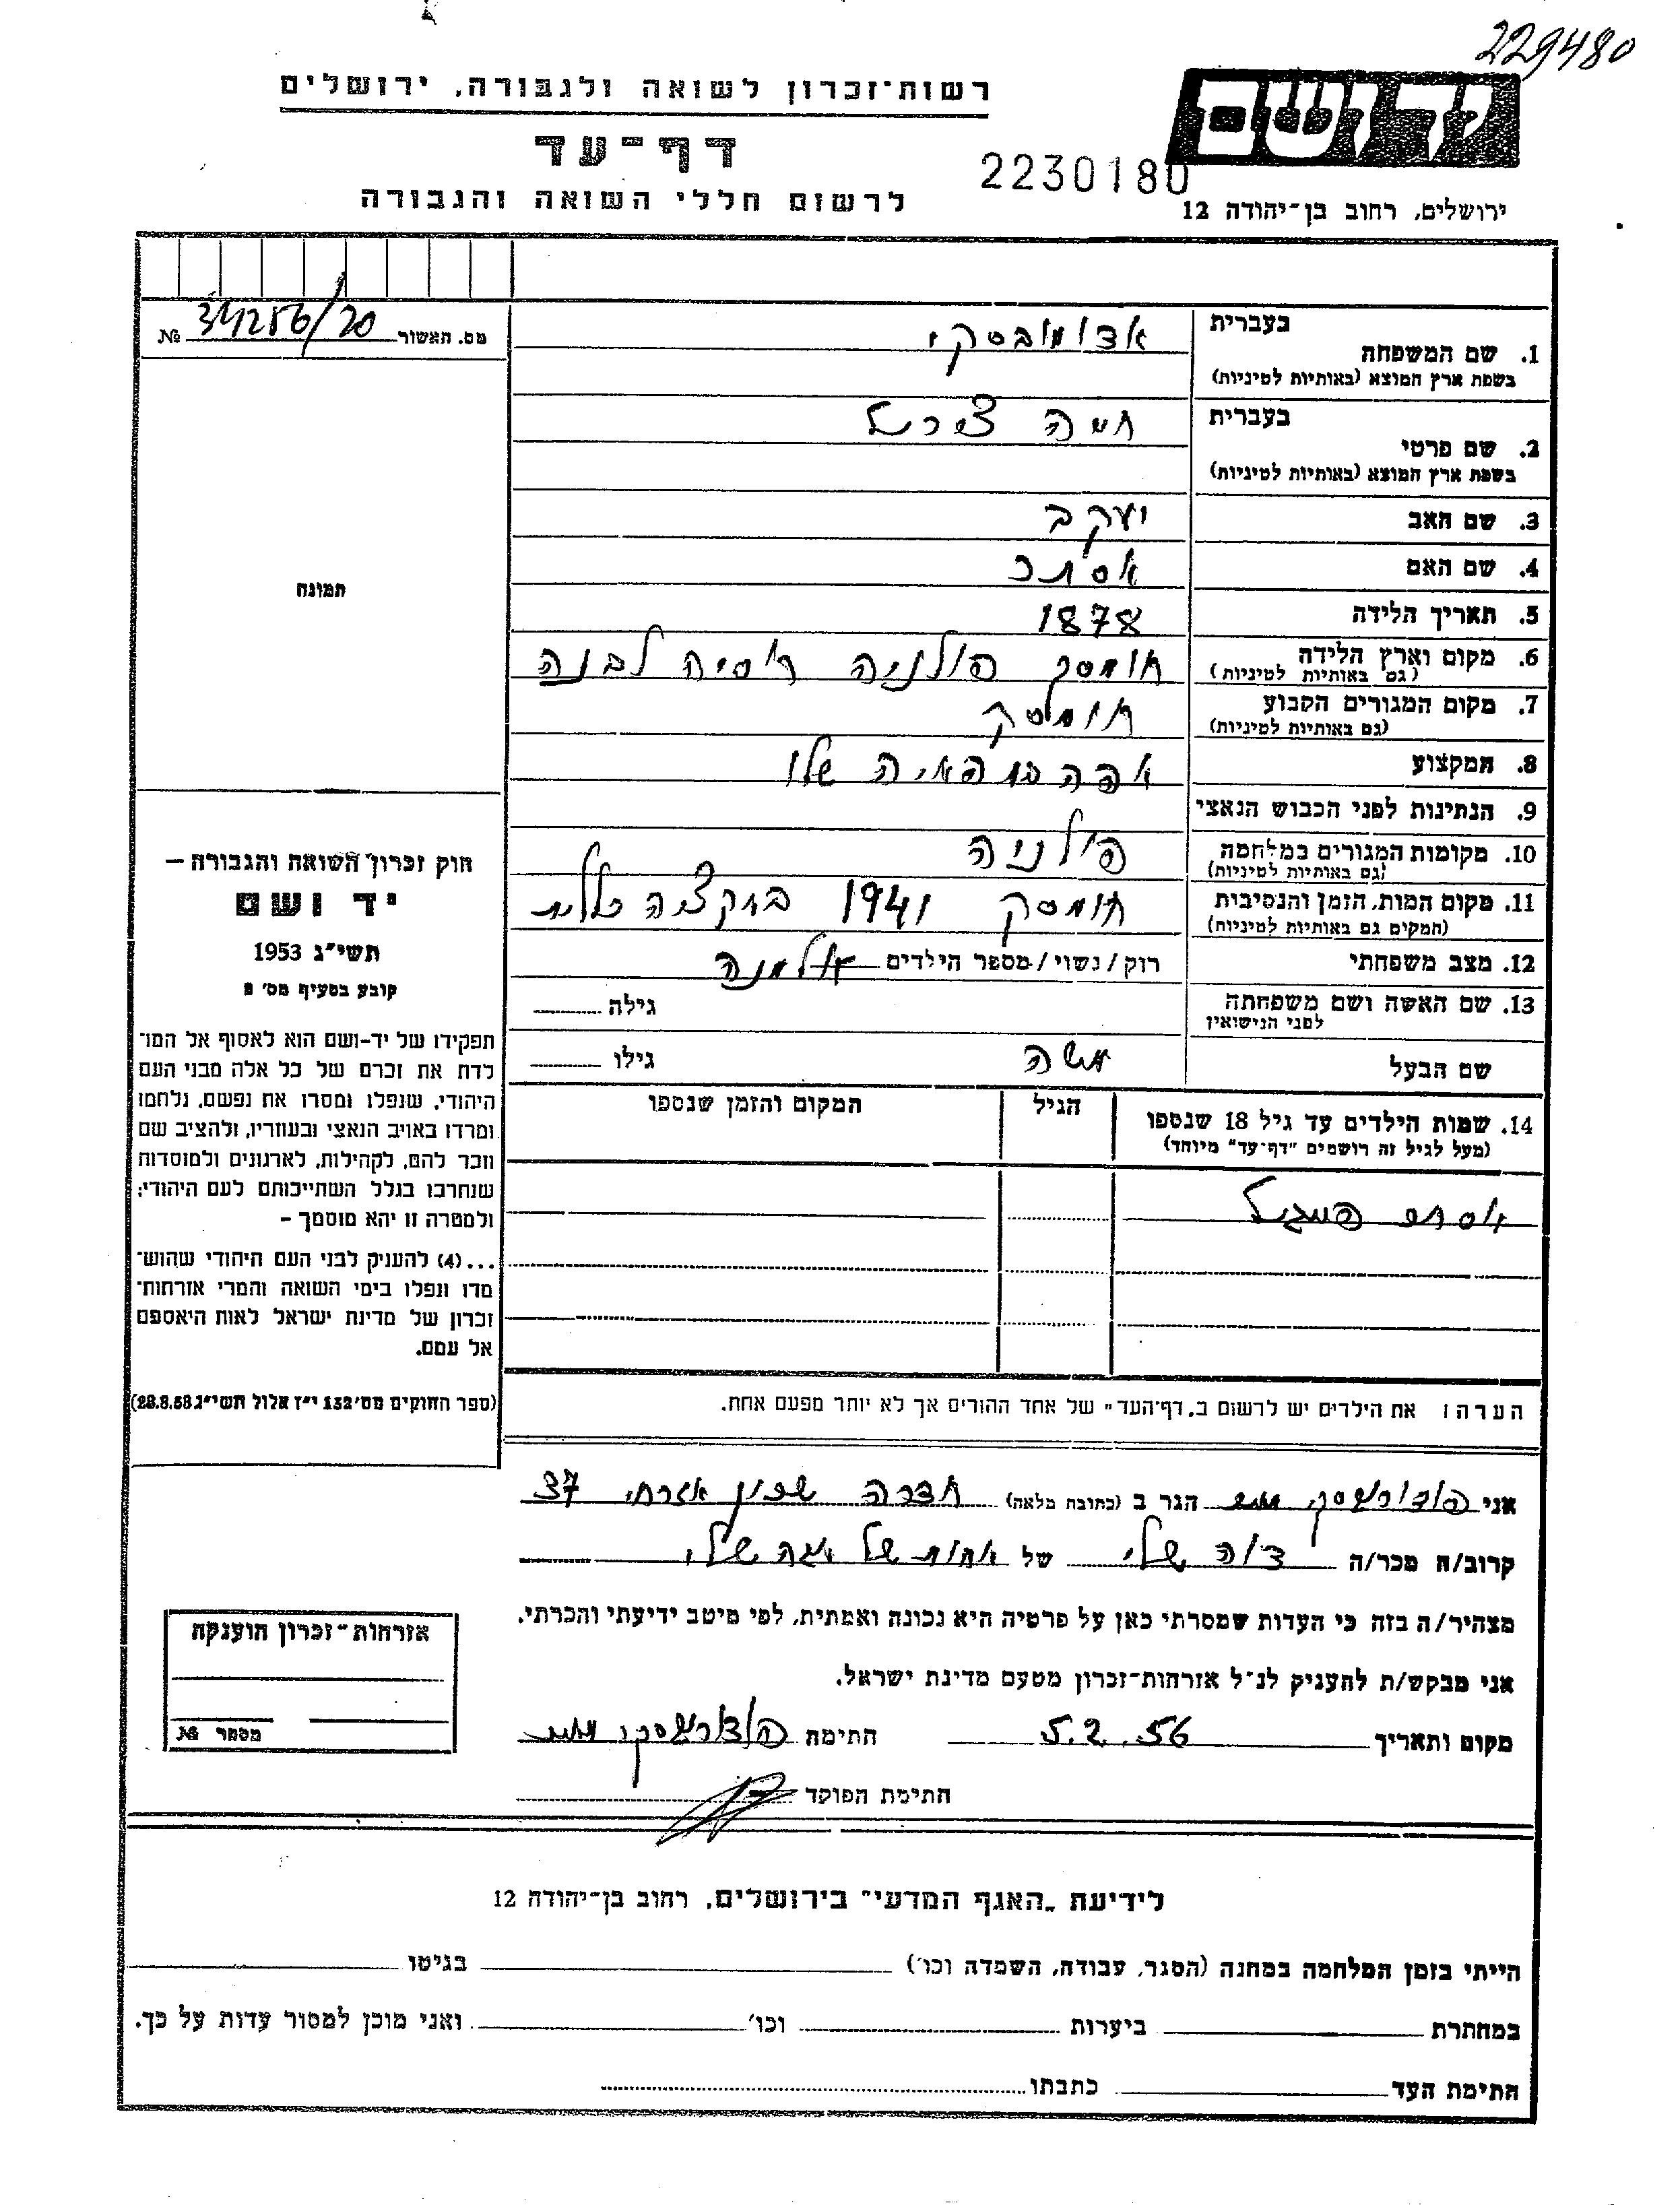 229480
ידושם
רשות־זכרון לשואה ולגבורה, ירושלים
דף־עד
2230180
לרשום חללי השואה והגבורה
ירושלים, רחוב בן־יהודה 12
מס. האשור 34256/20 №
בעברית
1. שם המשפחה
בשפת ארץ המוצא (באותיות לטיניות)
בעברית
חיה
2. שם פרטי
בשפת ארץ המוצא (באותיות לטיניות)
3. שם האב יעקב
4. שם האם אסתר
5. תאריך הלידה 1878
6. מקום וארץ הלידה חומסק פולניה רוסיה לבנה
(גם באותיות לטיניות)
7. מקום המגורים הקבוע חומסק
(גם באותיות לטיניות)
8. המקצוע שלו
9. הנתינות לפני הכבוש הנאצי פולניה
10. מקומות המגורים במלחמה
(גם באותיות לטיניות)
11. מקום המות, הזמן והנסיבות חומסק 1941 כללית
(המקום גם באותיות לטיניות)
12. מצב משפחתי רווק/נשוי/מספר הילדים אלמנה
13. שם האשה ושם משפחתה לפני הנישואין גילה
שם הבעל משה גילו
14. שמות הילדים עד גיל 18 שנספו הגיל המקום והזמן שנספו
(מעל לגיל זה רושמים "דף־עד" מיוחד)
אסתר
הערה: את הילדים יש לרשום ב„דף־העד" של אחד ההורים אך לא יותר מפעם אחת.
תמונה
חוק זכרון השואה והגבורה –
יד ושם
תשי"ג 1953
קובע בסעיף מס' 2
תפקידו של יד-ושם הוא לאסוף אל המו־
לדת את זכרם של כל אלה מבני העם
היהודי, שנפלו ומסרו את נפשם, נלחמו
ומרדו באויב הנאצי ובעוזריו, ולהציב שם
וזכר להם, לקהילות, לארגונים ולמוסדות
שנחרבו בגלל השתייכותם לעם היהודי;
ולמטרה זו יהא מוסמך –
...(4) להעניק לבני העם היהודי שהוש־
מדו ונפלו בימי השואה והמרי אזרחות־
זכרון של מדינת ישראל לאות היאספם
אל עמם.
(ספר החוקים מס' 132 י"ז אלול תשי"ג 28.8.53)
אני הגר ב (כתובת מלאה) חדרה שכון אזרחי 37
קרוב/ה מכר/ה שלי של אחות של שלי
מצהיר/ה בזה כי העדות שמסרתי כאן על פרטיה היא נכונה ואמתית, לפי מיטב ידיעתי והכרתי.
אני מבקש/ת להעניק לנ"ל אזרחות־זכרון מטעם מדינת ישראל.
מקום ותאריך 5.2.56 חתימה
חתימת הפוקד
אזרחות־זכרון הוענקה
מספר №
לידיעת „האגף המדעי" בירושלים, רחוב בן־יהודה 12
הייתי בזמן המלחמה במחנה (הסגר, עבודה, השמדה וכו') בגיטו
במחתרת ביערות וכו' ואני מוכן למסור עדות על כך.
חתימת העד כתבתו